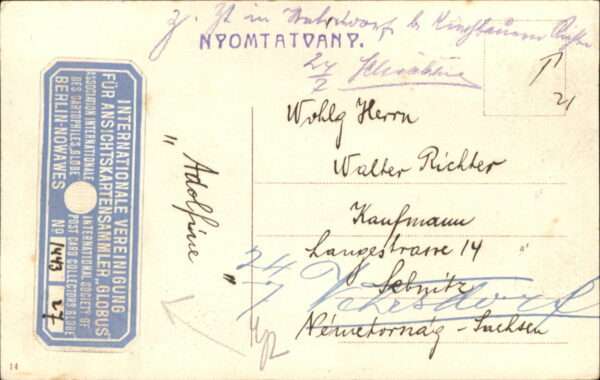 z. Zt in
NYOMTATVANY.
24/7
Wohlg Herrn
Walter Richter
Kaufmann
Langestrasse 14
Sebnitz
Németország - Sachsen
24/7
"Adolfine"
INTERNATIONALE VEREINIGUNG
FÜR ANSICHTSKARTENSAMMLER „GLOBUS"
ASSOCIATION INTERNATIONALE
DES CARTOPHILES „GLOBE
INTERNATIONAL SOCIETY OF
POST CARD COLLECTORS „GLOBE
BERLIN-NOWAWES
No 1443 27
14